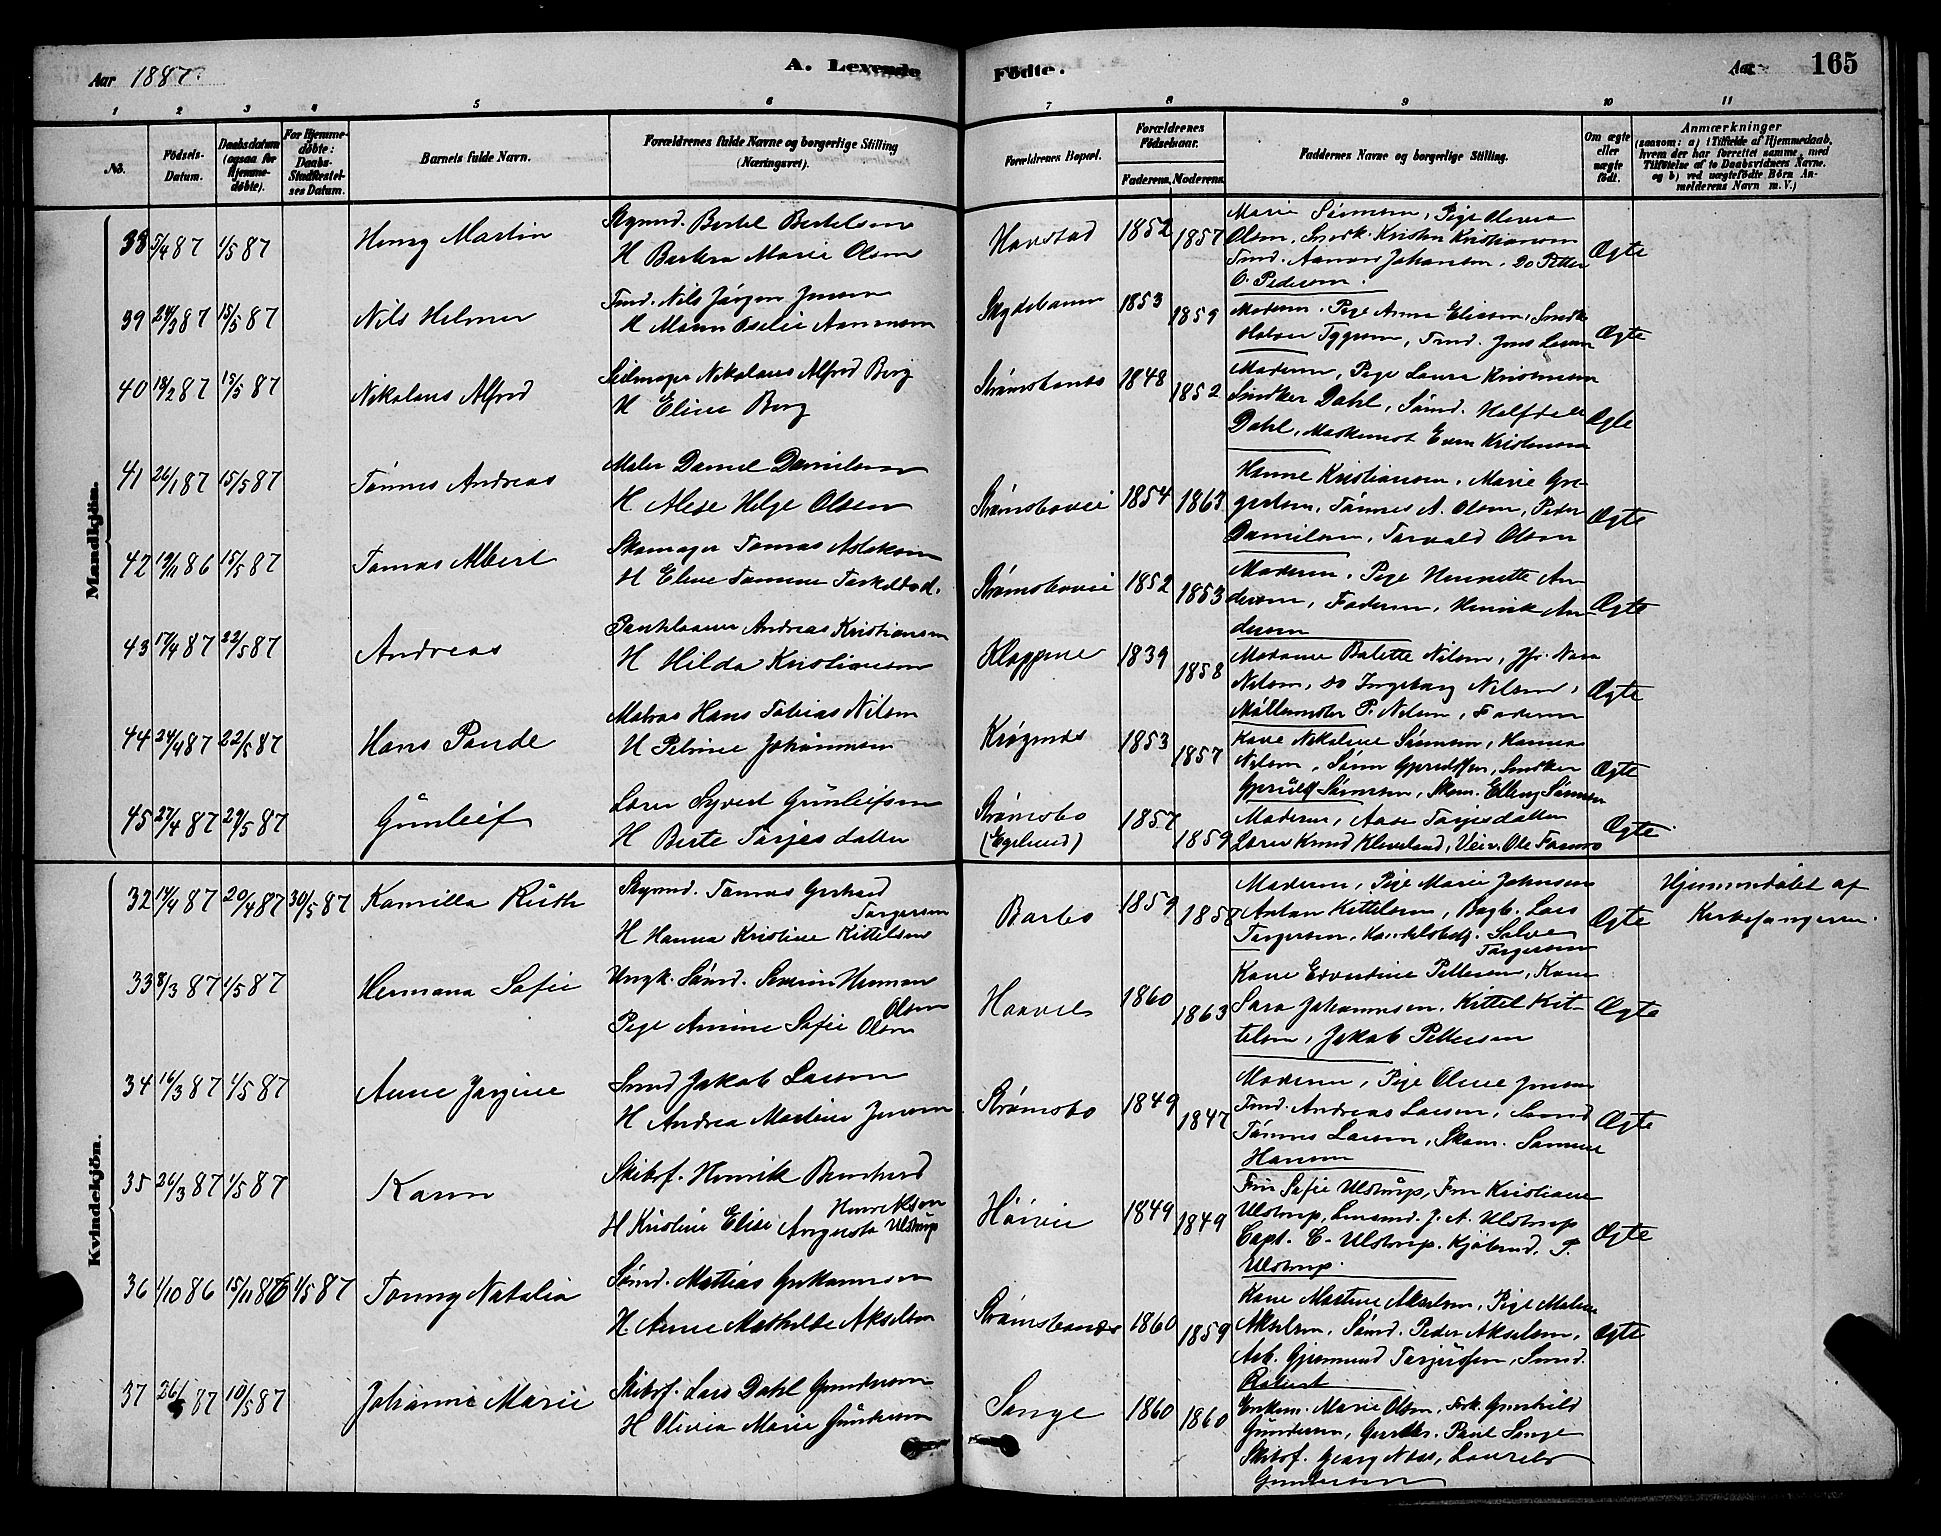 Aar 1887.
A. Levende
Fødte.
Aar
165
1 2 3 4 5 6 7 8 9 10 11
No.
Fødsels-
Datum.
Daabsdatum
(ogsaa for
Hjemme-
døbte).
For Hjemme-
døbte:
Daabs-
Stadfæstel-
ses Datum.
Barnets fulde Navn.
Forældrenes fulde Navne og borgerlige Stilling
(Næringsvei).
Forældrenes Bopæl.
Forældrenes
Fødselsaar.
Faderens. Moderens.
Faddernes Navne og borgerlige Stilling.
Om ægte
eller
uægte
født.
Anmærkninger
(saasom: a) i Tilfælde af Hjemmedaab,
hvem der har forrettet samme, med
Tilføielse af to Daabsvidners Navne,
og b) ved uægtefødte Børn An-
melderens Navn m. V.)
Mandkjön.
38 5/4 87 1/5 87
Henry Martin
Styrmd. Bertel Bertelsen
H Barbra Marie Olsen
Havstad
1852 1857
Marie Simonsen, Pige Olivia
Olsen, Snedk. Kristen Kristiansen
Tmd. Aanon Johansen, Do Petter
O. Pedersen.
Ægte
39 24/3 87 15/5 87
Nils Helmer
Tmd. Nils Jörgen Jensen
H Maren Oselie Aanonsen
Skydebanen
1853 1859
Moderen, Pige Anna Eliasen, Snedk.
Halvor Tygesen, Tmd. Jens Larsen
Ægte
40 18/2 87 15/5 87
Nikolaus Alfred
Seilmager Nikolaus Alfred Berg
H Eline Berg
Strømsbunes
1848 1852
Moderen, Pige Laura Kristensen
Snedker Dahl, Sömd. Halfdan
Dahl, Maskinest Even Kristensen
Ægte
41 26/1 87 15/5 87
Tönnes Andreas
Maler Daniel Danielsen
H Alise Helge Olsen
Strømsboveie
1854 1863
Hanne Kristiansen, Marie Gre-
gersen, Tönnes A. Olsen, Peder
Danielsen, Torvald Olsen
Ægte
42 19/11 86 15/5 87
Tomas Albert
Skomager Tomas Aslaksen
H Eline Tomine Torkelsd.
Strømsboveie
1852 1853
Moderen, Pige Henriette An-
dersen, Faderen, Henrik An-
dersen
Ægte
43 17/4 87 22/5 87
Andreas
Andreas Kristiansen
H Hilda Kristiansen
Kloppene
1839 1858
Madame Balette Nilsen, Jfr. Nora
Nilsen, do Ingeborg Nilsen,
Möllemster P. Nilsen, Faderen
Ægte
44 24/4 87 22/5 87
Hans Paude
Matros Hans Tobias Nilsen
H Petrine Johannesen
Krögenes
1853 1857
Kone Nikoline Sörensen, Hanna
Nilsen, Sören Gjeruldsen, Snedker
Gjeruld Sörensen, Skom. Elling Sörensen
Ægte
45 27/4 87 29/5 87
Günleif
Lærer Syvert Günleifsen
H Berte Tarjesdatter
Strømsbo
(Egelund)
1857 1859
Moderen, Aase Tarjesdatter
Lærer Knud Kleveland, Veiv. Ole Fosmo
Ægte
Kvindekjön.
32 14/4 87 20/4 87 30/5 87
Kamilla Ruth
Styrmd. Tomas Gerhard
Torgersen
H Hanna Kristine Kittelsen
Barbo
1859 1858
Moderen, Pige Marie Johnsen
Anton Kittelsen, Bagb. Lars
Torgersen, Handelsbetj. Salve
Torgersen
Ægte
Hjemmedöbt af
Kirkesangeren.
33 8/3 87 1/5 87
Hermana Sofie
Ungk. Sömd. Severin Herman
Olsen
Pige Amine Sofie Olsen
Haavet
1860 1863
Kone Edvardine Pettersen, Kone
Sara Johannesen, Kittel Kit-
telsen, Jakob Pettersen
Ægte
34 16/3 87 1/5 87
Anne Jörgine
Smed Jakob Larsen
H Andrea Martine Jensen
Strømsbo
1849 1847
Moderen, Pige Oline Jensen
Tmd. Andreas Larsen, Smed
Tönnes Larsen, Skom. Samuel
Hansen
Ægte
35 26/3 87 1/5 87
Karen
Skibsf. Henrik Bernhard
Henriksen
H Kristine Elise Augusta Ulstrup
Höivei
1849 1849
Fru Sofie Ulstrup, Fru Kristiane
Ulstrup, J. A. Ulstrup
Capt. C. Ulstrup, Kjöbmd. P.
Ulstrup.
Ægte
36 1/10 86 15/11 86 1/5 87
Tonny Natalia
Sömd. Mattias
H. Anne Mathilde Akselsen
Strømsbunes
1860 1859
Kone Martine Akselsen, Pige Malene
Akselsen, Sömd. Peder Akselsen,
Arb. Gjermund Tarjesen, Smed.
Robert
Ægte
37 26/ 87 10/5 87
Johanne Marie
Skibsf. Lars Dahl Gundersen
H Olivia Marie Gundersen
Songe
1860 1860
Enkem. Marie Olsen, Frk. Gunhild
Gundersen, Paul Songe
Skibsf. Georg Næs, Laurits
Gundersen